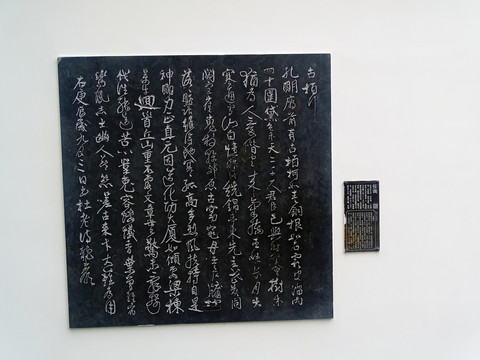 古柏行
孔明廟前有古柏柯如青銅根如石霜皮溜雨
四十圍黛色參天二千尺君臣已與時際會樹木
猶為人愛惜雲來氣接巫峽長月出
寒通雪山白憶昨路繞錦亭東先主武侯同
閟宮崔嵬枝幹郊原古窈窕丹青戶牖空
落落盤踞雖得地冥冥孤高多烈風扶持自是
神明力正直元因造化功大廈如傾要梁棟
萬牛迴首丘山重不露文章世已驚未辭剪
伐誰能送苦心豈免容螻蟻香葉曾經宿
鸞鳳志士幽人莫怨嗟古來材大難為用
右庚辰歲九月三日書杜老詩